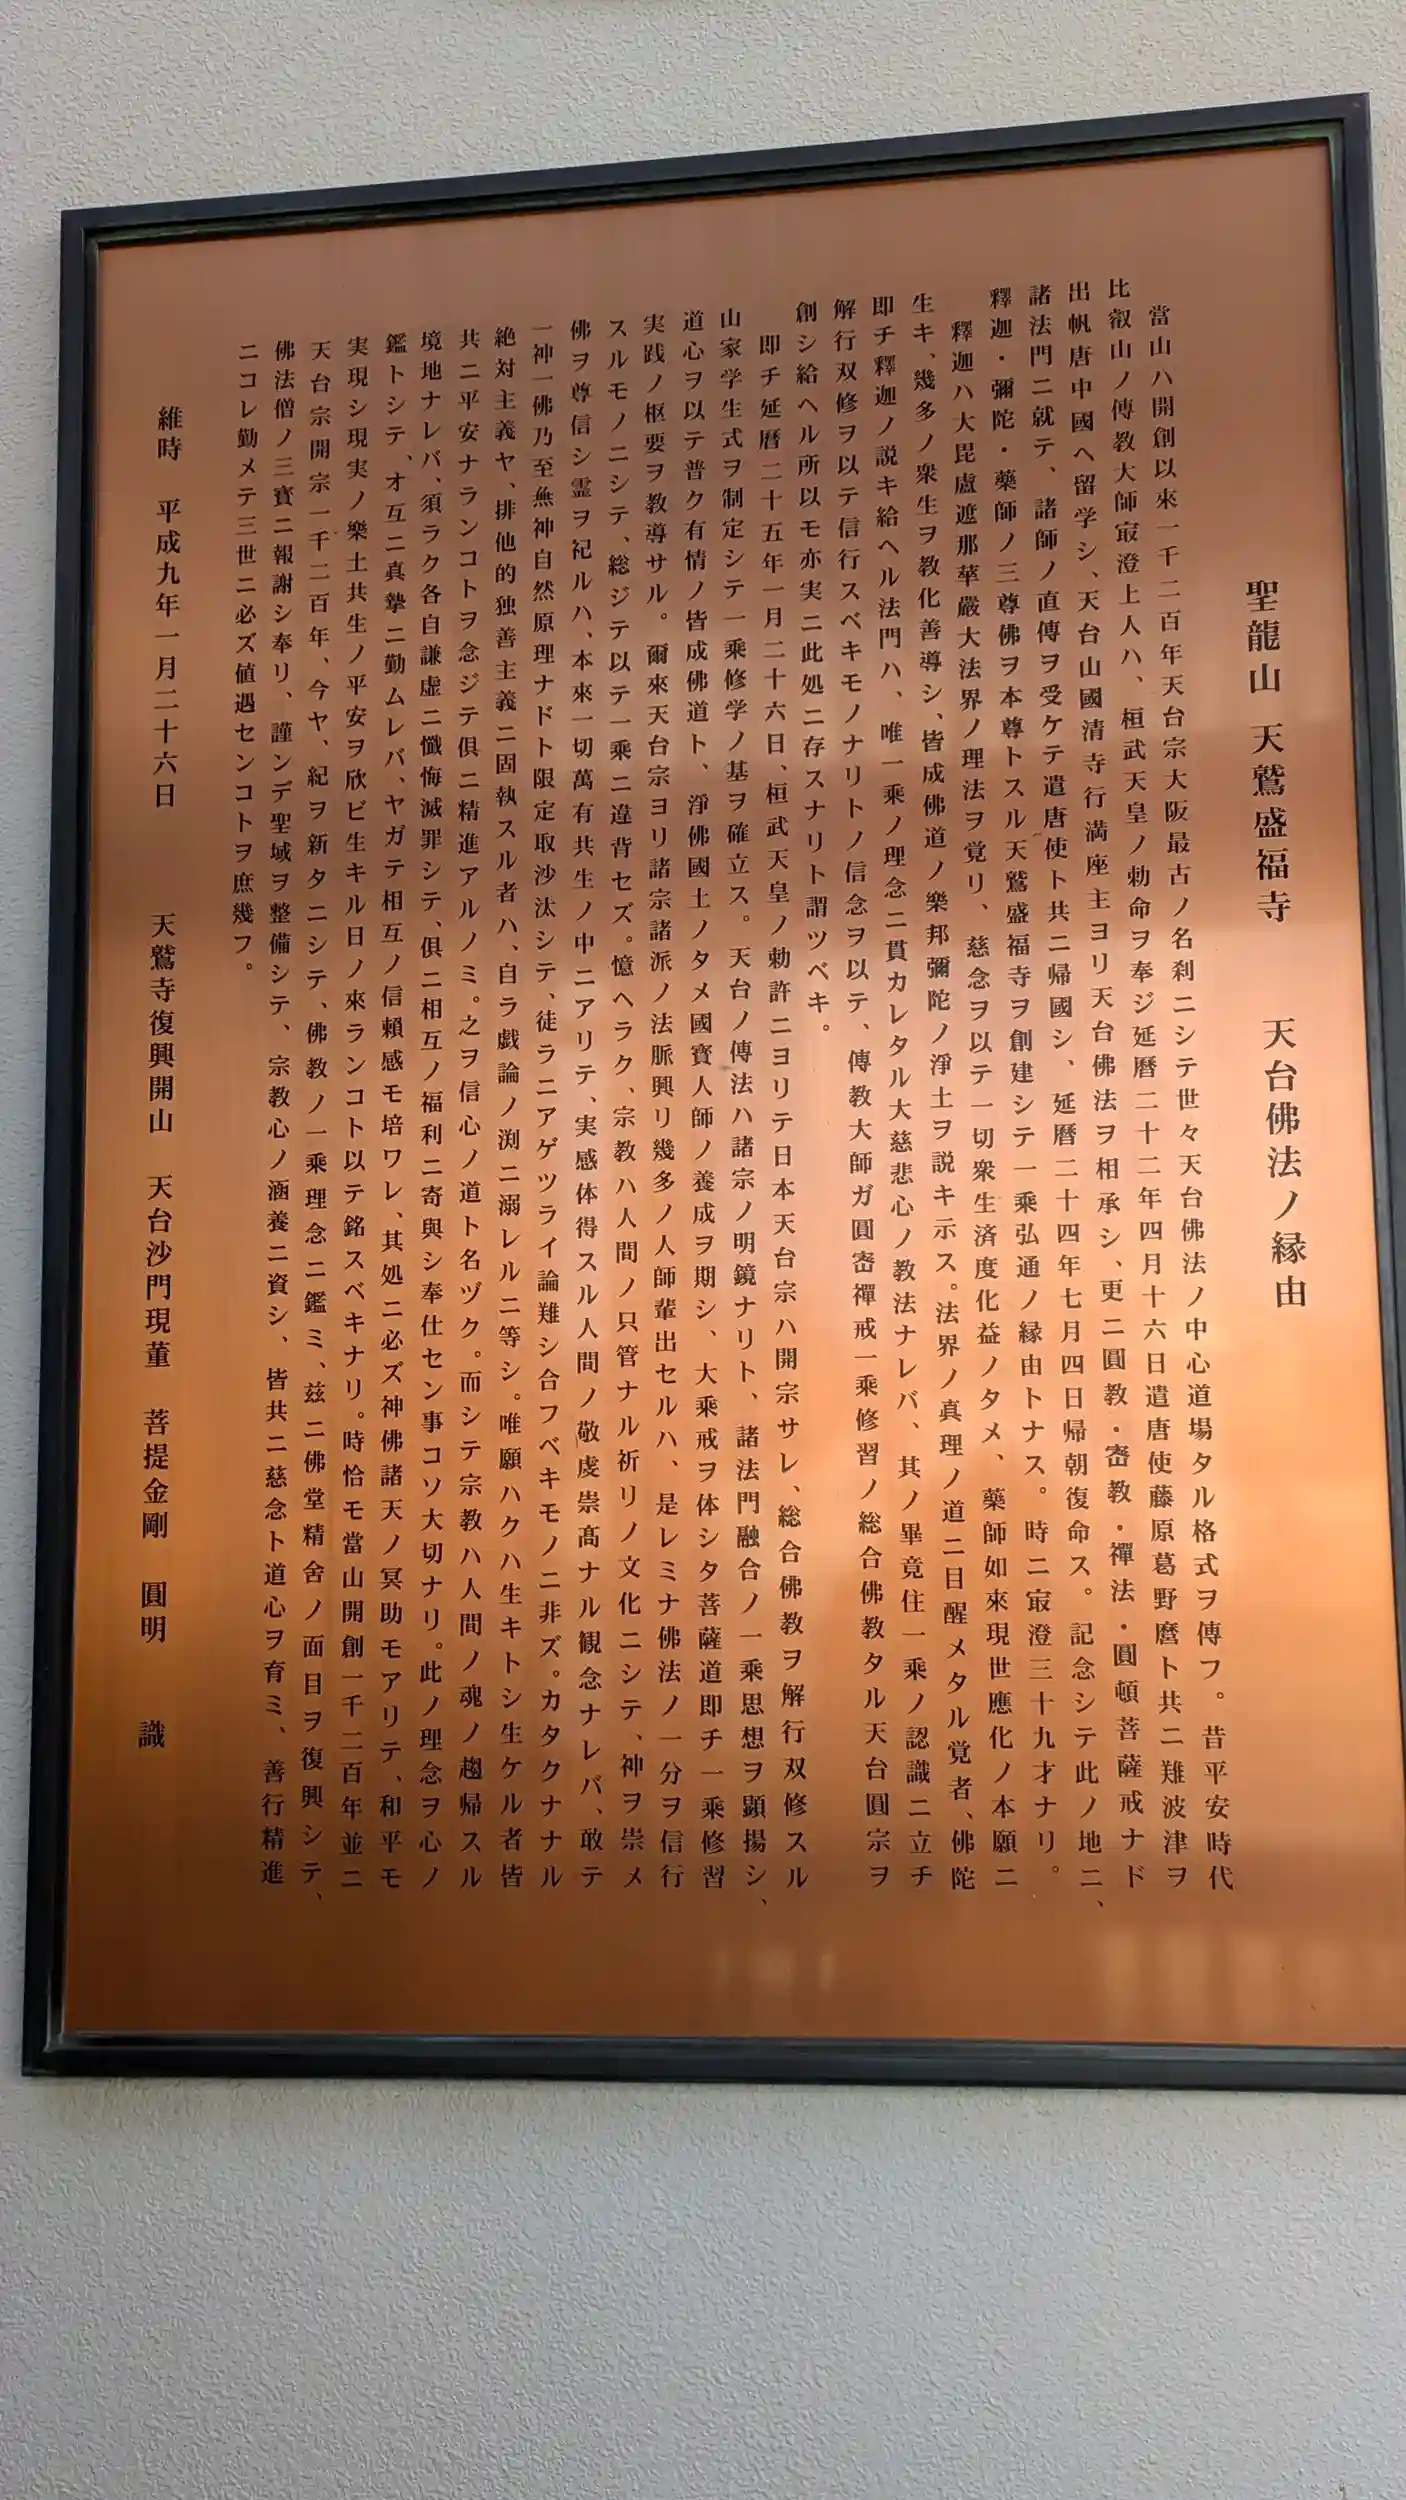 聖龍山 天鷲盛福寺 天台佛法ノ縁由
當山ハ開創以來一千二百年天台宗大阪最古ノ名刹ニシテ世々天台佛法ノ中心道場タル格式ヲ傳フ。昔平安時代
比叡山ノ傳教大師㝡澄上人ハ、桓武天皇ノ勅命ヲ奉ジ延暦二十二年四月十六日遣唐使藤原葛野麿ト共ニ難波津ヲ
出帆唐中國ヘ留学シ、天台山國清寺行満座主ヨリ天台佛法ヲ相承シ、更ニ圓教・密教・禪法・圓頓菩薩戒ナド
諸法門ニ就テ、諸師ノ直傳ヲ受ケテ遣唐使ト共ニ帰國シ、延暦二十四年七月四日帰朝復命ス。記念シテ此ノ地ニ、
釋迦・彌陀・藥師ノ三尊佛ヲ本尊トスル天鷲盛福寺ヲ創建シテ一乘弘通ノ縁由トナス。時ニ㝡澄三十九才ナリ。
釋迦ハ大毘盧遮那華嚴大法界ノ理法ヲ覚リ、慈念ヲ以テ一切衆生済度化益ノタメ、藥師如來現世應化ノ本願ニ
生キ、幾多ノ衆生ヲ教化善導シ、皆成佛道ノ樂邦彌陀ノ淨土ヲ説キ示ス。法界ノ真理ノ道ニ目醒メタル覚者、佛陀
即チ釋迦ノ説キ給ヘル法門ハ、唯一乘ノ理念ニ貫カレタル大慈悲心ノ教法ナレバ、其ノ畢竟住一乘ノ認識ニ立チ
解行双修ヲ以テ信行スベキモノナリトノ信念ヲ以テ、傳教大師ガ圓密禪戒一乘修習ノ総合佛教タル天台圓宗ヲ
創シ給ヘル所以モ亦実ニ此処ニ存スナリト謂ツベキ。
即チ延暦二十五年一月二十六日、桓武天皇ノ勅許ニヨリテ日本天台宗ハ開宗サレ、総合佛教ヲ解行双修スル
山家学生式ヲ制定シテ一乘修学ノ基ヲ確立ス。天台ノ傳法ハ諸宗ノ明鏡ナリト、諸法門融合ノ一乘思想ヲ顕揚シ、
道心ヲ以テ普ク有情ノ皆成佛道ト、淨佛國土ノタメ國寶人師ノ養成ヲ期シ、大乘戒ヲ体シタ菩薩道即チ一乘修習
実践ノ枢要ヲ教導サル。爾來天台宗ヨリ諸宗諸派ノ法脈興リ幾多ノ人師輩出セルハ、是レミナ佛法ノ一分ヲ信行
スルモノニシテ、総ジテ以テ一乘ニ違背セズ。憶ヘラク、宗教ハ人間ノ只管ナル祈リノ文化ニシテ、神ヲ崇メ
佛ヲ尊信シ霊ヲ祀ルハ、本來一切萬有共生ノ中ニアリテ、実感体得スル人間ノ敬虔崇髙ナル観念ナレバ、敢テ
一神一佛乃至無神自然原理ナドト限定取沙汰シテ、徒ラニアゲツライ論難シ合フベキモノニ非ズ。カタクナナル
絶対主義ヤ、排他的独善主義ニ固執スル者ハ、自ラ戯論ノ渕ニ溺レルニ等シ。唯願ハクハ生キトシ生ケル者皆
共ニ平安ナランコトヲ念ジテ俱ニ精進アルノミ。之ヲ信心ノ道ト名ヅク。而シテ宗教ハ人間ノ魂ノ趨帰スル
境地ナレバ、須ラク各自謙虚ニ懺悔滅罪シテ、俱ニ相互ノ福利ニ寄與シ奉仕セン事コソ大切ナリ。此ノ理念ヲ心ノ
鑑トシテ、オ互ニ真摯ニ勤ムレバ、ヤガテ相互ノ信頼感モ培ワレ、其処ニ必ズ神佛諸天ノ冥助モアリテ、和平モ
実現シ現実ノ樂土共生ノ平安ヲ欣ビ生キル日ノ來ランコト以テ銘スベキナリ。時恰モ當山開創一千二百年並ニ
天台宗開宗一千二百年、今ヤ、紀ヲ新タニシテ、佛教ノ一乘理念ニ鑑ミ、茲ニ佛堂精舎ノ面目ヲ復興シテ、
佛法僧ノ三寶ニ報謝シ奉リ、謹ンデ聖域ヲ整備シテ、宗教心ノ涵養ニ資シ、皆共ニ慈念ト道心ヲ育ミ、善行精進
ニコレ勤メテ三世ニ必ズ値遇センコトヲ庶幾フ。
維時 平成九年一月二十六日 天鷲寺復興開山 天台沙門現董 菩提金剛 圓明 識